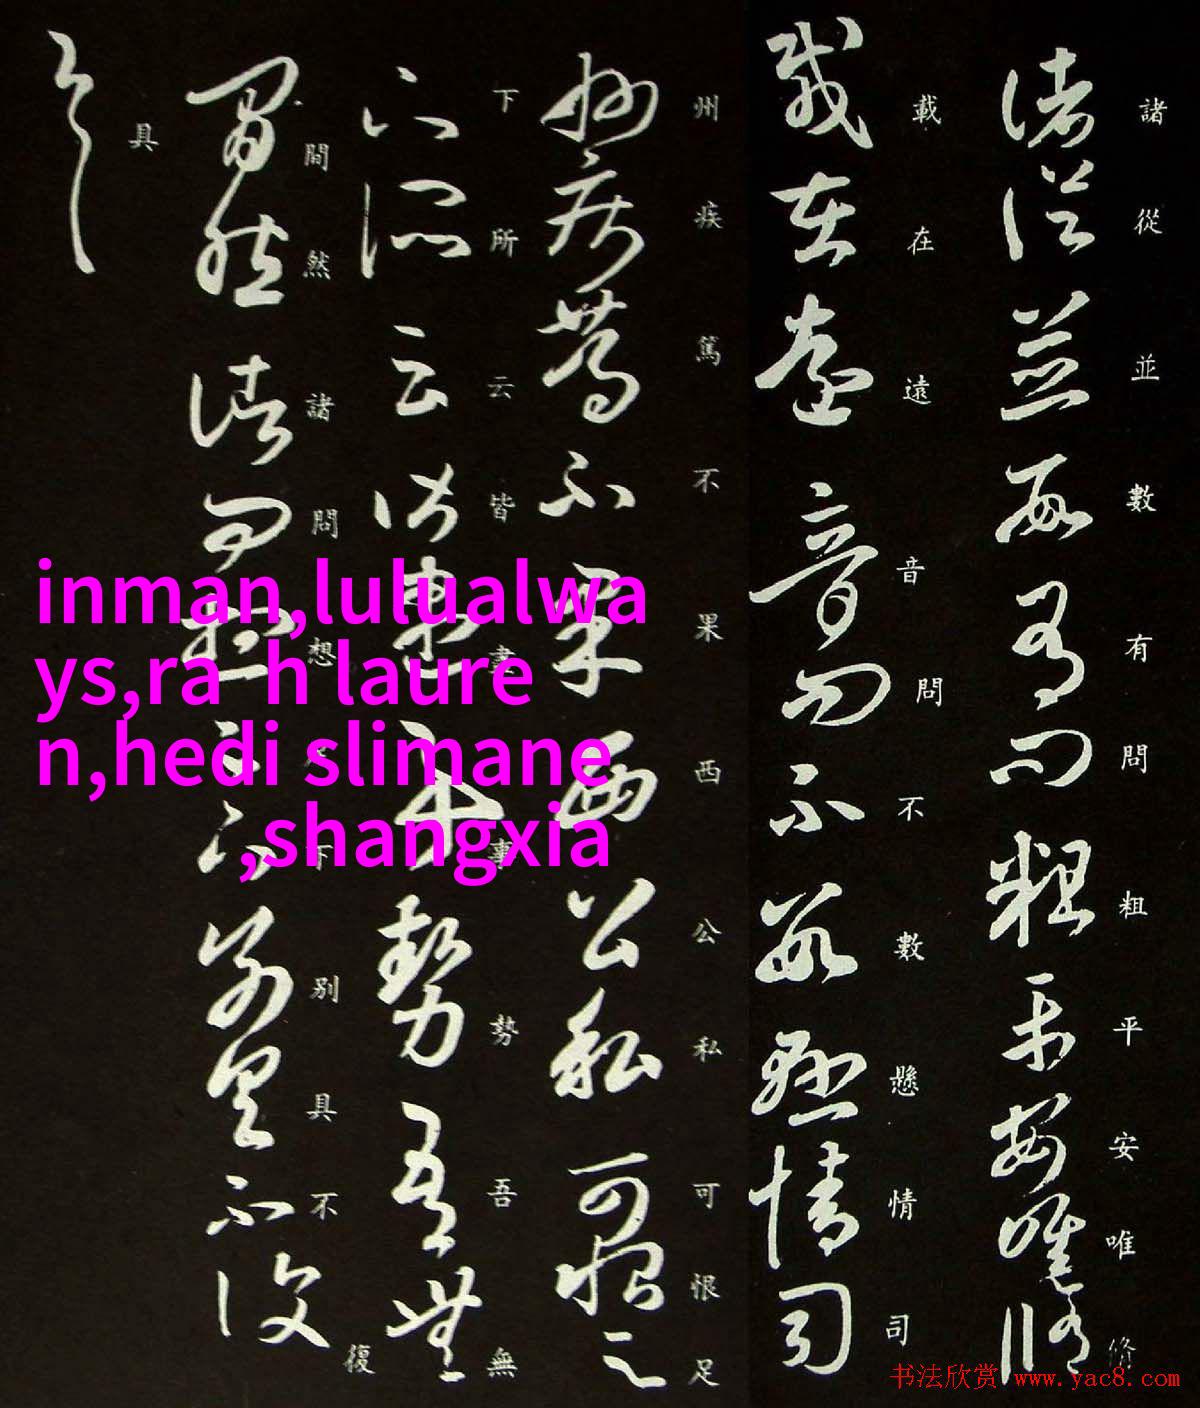 諸從並數有問粗平安唯修
載在遠音問不數懸情司
州疾篤不果西公私可恨足
下所云皆盡事勢吾無
間然諸問想足下別具不復
具
inman,lulualwa
ys,ra h laure
n,hedi slimane
,shangxia
书法欣赏 www.yac8.com